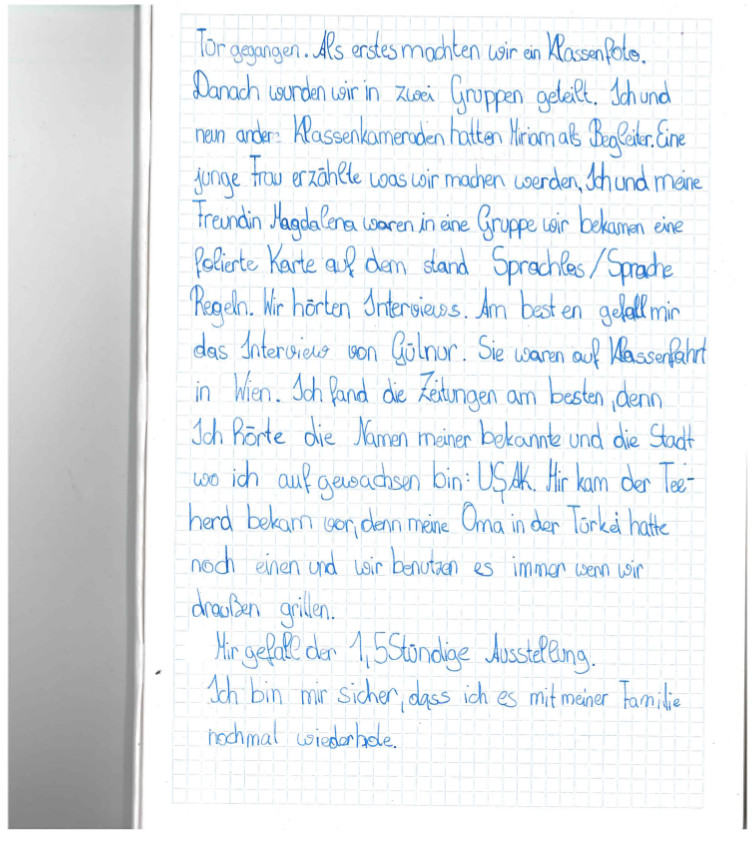 Tor gegangen. Als erstes machten wir ein Klassenfoto.
Danach wurden wir in zwei Gruppen geteilt. Ich und
neun andere Klassenkameraden hatten Miriam als Begleiter. Eine
junge Frau erzählte was wir machen werden, Ich und meine
Freundin Magdalena waren in eine Gruppe wir bekamen eine
folierte Karte auf dem stand Sprachlos/Sprache
Regeln. Wir hörten Interviews. Am besten gefall mir
das Interview von Gülnur. Sie waren auf Klassenfahrt
in Wien. Ich fand die Zeitungen am besten, denn
Ich hörte die Namen meiner bekannte und die Stadt
wo ich aufgewachsen bin: UŞAK. Mir kam der Tee-
herd bekam vor, denn meine Oma in der Türkei hatte
noch einen und wir benutzen es immer wenn wir
draußen grillen.
Mir gefall der 1,5 Stündige Ausstellung.
Ich bin mir sicher, dass ich es mit meiner Familie
nochmal wiederhole.